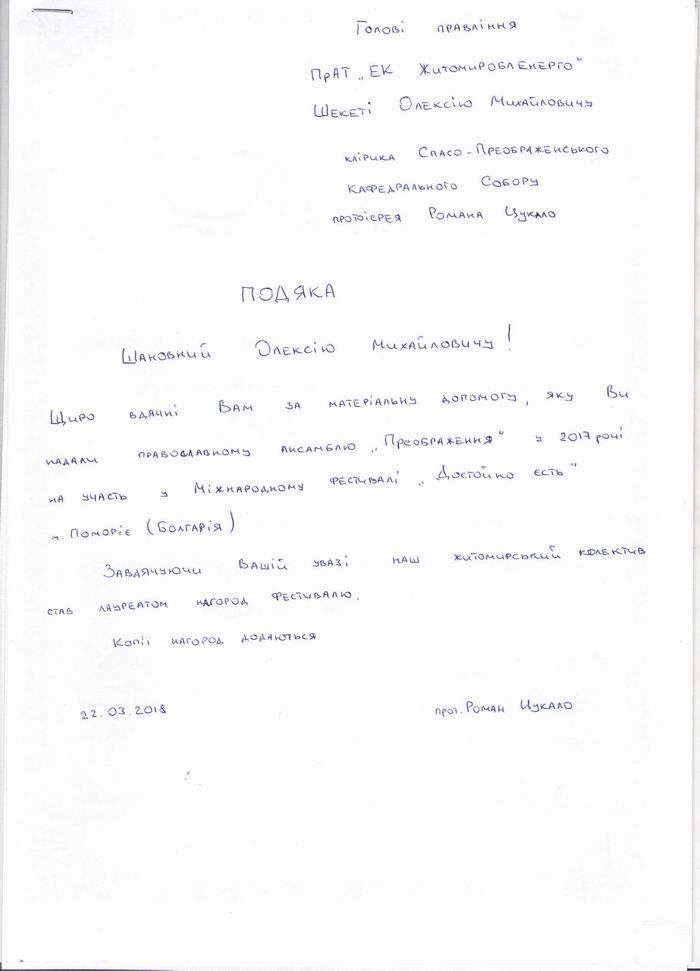 Голові правління
ПрАТ „ЕК Житомиробленерго“
Шекеті Олексію Михайловичу
клірика Спасо-Преображенського
кафедрального Собору
протоієрея Романа Цукало
ПОДЯКА
Шановний Олексію Михайловичу!
Щиро вдячні Вам за матеріальну допомогу, яку Ви
надали православному ансамблю „Преображення“ у 2017 році
на участь у Міжнародному фестивалі „Достойно єсть“
м. Поморіє (Болгарія)
Завдячуючи Вашій увазі наш житомирський колектив
став лауреатом нагород фестивалю.
Копії нагород додаються
22.03.2018 прот. Роман Цукало